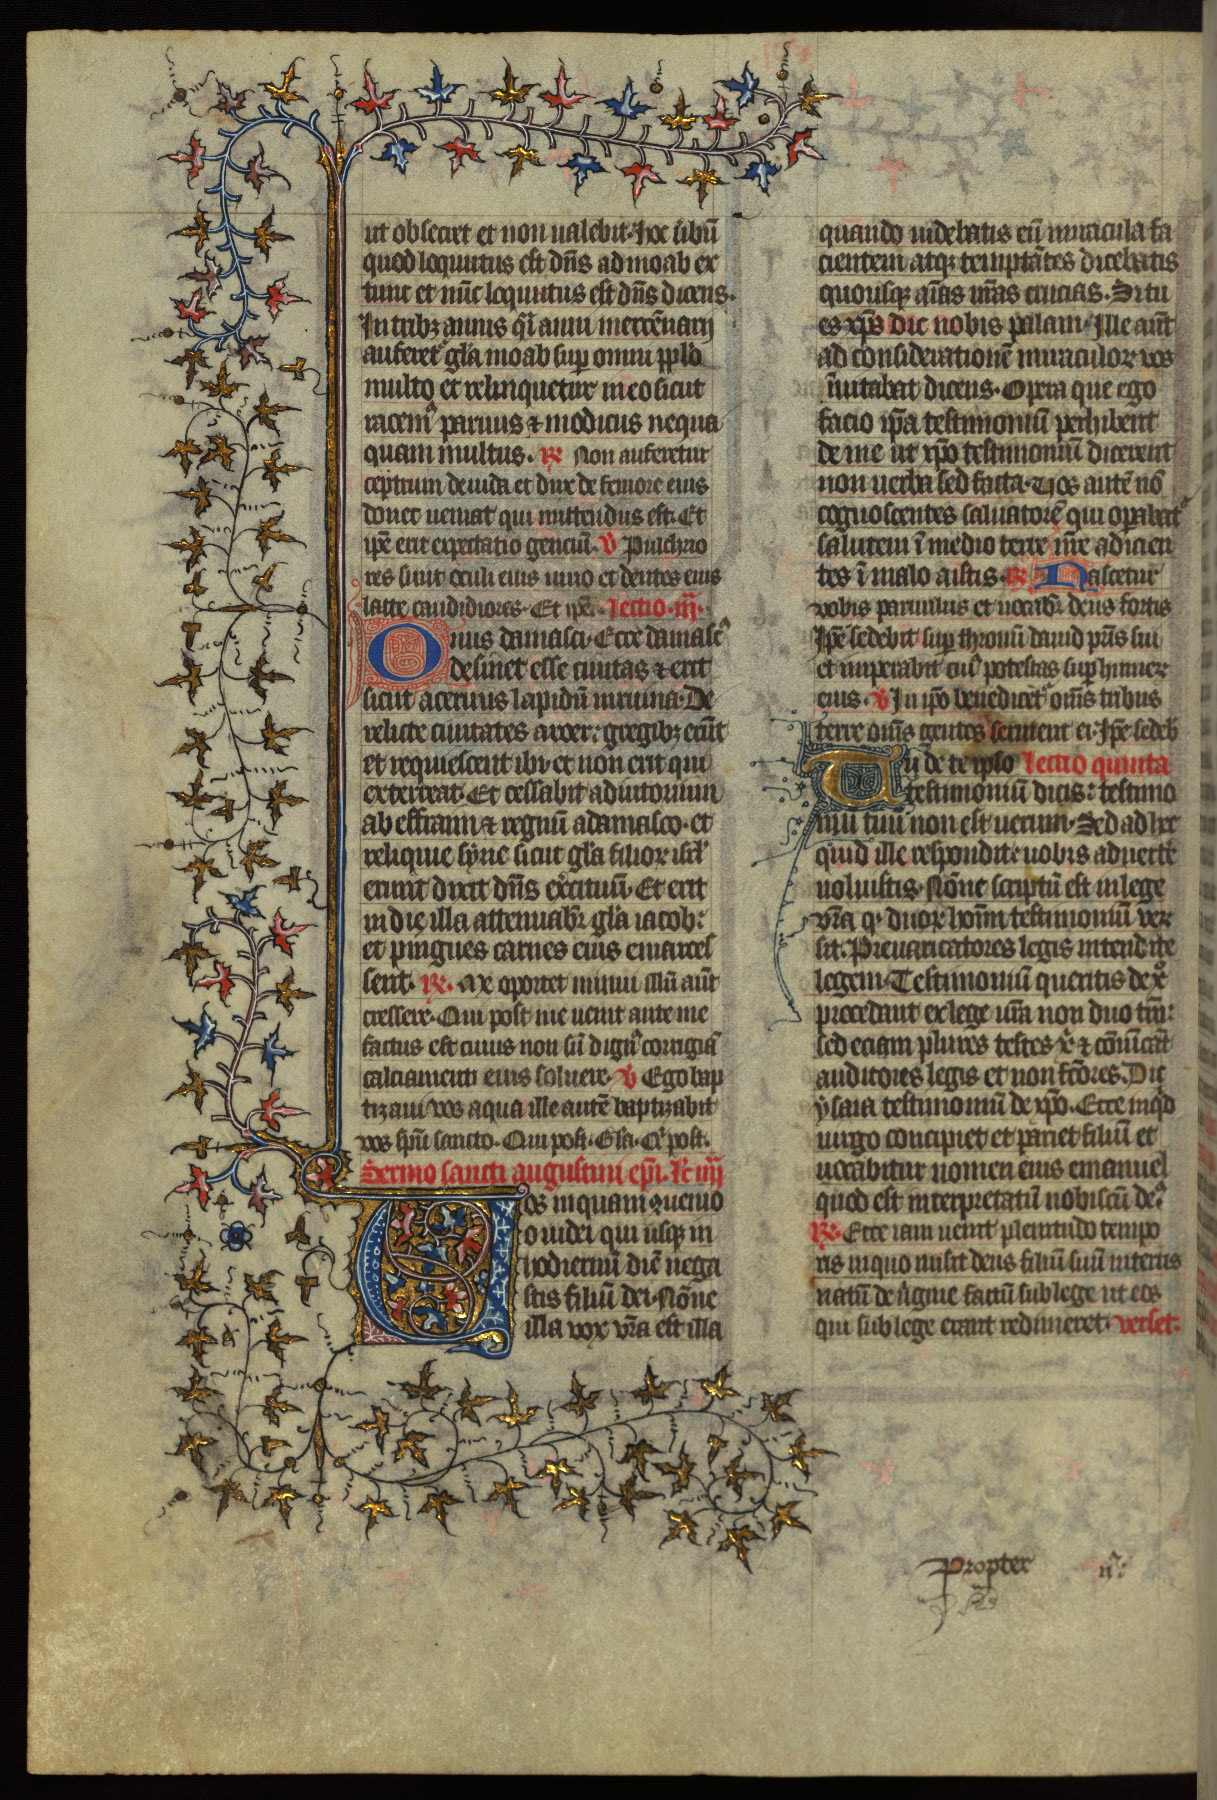 ut obsecret et non ualebit. hoc ũbũ
quod loquutus est dñs ad moab ex
tunc et nũc loquutus est dñs dicens.
In tribꝫ annis q̃i anni mercẽnarij
auferet᷑ gl̃a moab sup omni ppl̃o
multo et relinquetur in eo sicut
racem᷒ paruus ⁊ modicus nequa
quam multus. R̃ Non auferetur
ceptrum de iuda et dux de femore eius
donec ueniat qui mittendus est. Et
ip̃e erit expectatio genciũ. ℣ Pulchrio
res sunt oculi eius uino et dentes eius
lacte candidiores. Et ip̃e. lectio .iij.
Onus damasci. Ecce damasc᷒
desinet esse ciuitas ⁊ erit
sicut aceruus lapidũ in ruina. De
relicte ciuitates aroer: gregibꝫ erũt
et requiescent ibi et non erit qui
exterreat. Et cessabit adiutorium
ab effraim ⁊ regnũ a damasco. et
reliquie syrie sicut gl̃a filior isrl̃
erunt dixit dñs exc̃ituũ. Et erit
in die illa attenuabr̃ gl̃a iacob:
et pingues carnes eius emarces
sent. R̃. Me oportet minui illũ aũt
crescere. Qui post me uenit ante me
factus est cuius non sũ dign᷒ corrigiã
calciamenti eius soluere. ℣ Ego bap
tizaui uos aqua ille autẽ baptizabit
uos sp̃u sancto. Qui post. Gl̃a. Q̃ post.
Sermo sancti augustini ep̃i. lc̃ iiij
Vos inquam conuenio
o iudei qui usqꝫ in
hodiernũ diẽ nega
stis filiũ dei. Nõne
illa uox ur̃a est illa
quando uidebatis eũ miracula fa
cientem atqꝫ temptãtes dicebatis
quousqꝫ aĩas nr̃as crucias. Si tu
es xp̃s dic nobis palam. Ille aũt
ad considerationẽ miraculor uos
mitabat dicens. Opera que ego
facio ip̃a testimoniũ perhibent
de me ut xp̃o testimoniũ dicerent
non uerba sed facta. Uos autẽ nõ
cognoscentes saluatorẽ qui opabat᷑
salutem ĩ medio terre ur̃e adicien
tes ĩ malo aistis. R̃ Nascetur
nobis paruulus et uocabr̃ deus fortis
Ip̃e sedebit sup thronũ dauid pr̃is sui
et imperabit cui᷒ potestas sup humer
eius. ℣ In ip̃o benedicet᷑ om̃s tribus
terre om̃s gentes seruient ei. Ip̃e sedeb̃
Tu de te ipso lectio quinta
testimoniũ dicis: testimo
niũ tuũ non est uerum. Sed ad hec
quid ille respondit uobis aduerte
noluistis. Nõne scriptũ est in lege
ur̃a q᷒ duor hoĩm testimoniũ ver
sit. Preuaricatores legis intendite
legem. Testimoniũ queritis de xp̃o
procedant ex lege ur̃a non duo tm̃:
sed eciam plures testes xp̃i ⁊ cõuincãt
auditores legis et non fc̃ores. Dic
ysaia testimoniũ de xp̃o. Ecce inq̃d
uirgo concipiet et pariet filiũ et
uocabitur nomen eius emanuel
quod est interpretatũ nobiscũ de᷒
R̃. Ecce iam uenit plenitudo tempo
ris in quo misit deus filiũ suũ in terris
natũ de ũgine factũ sub lege ut eos
qui sub lege erant redimeret. verset.
Propter n᷒: